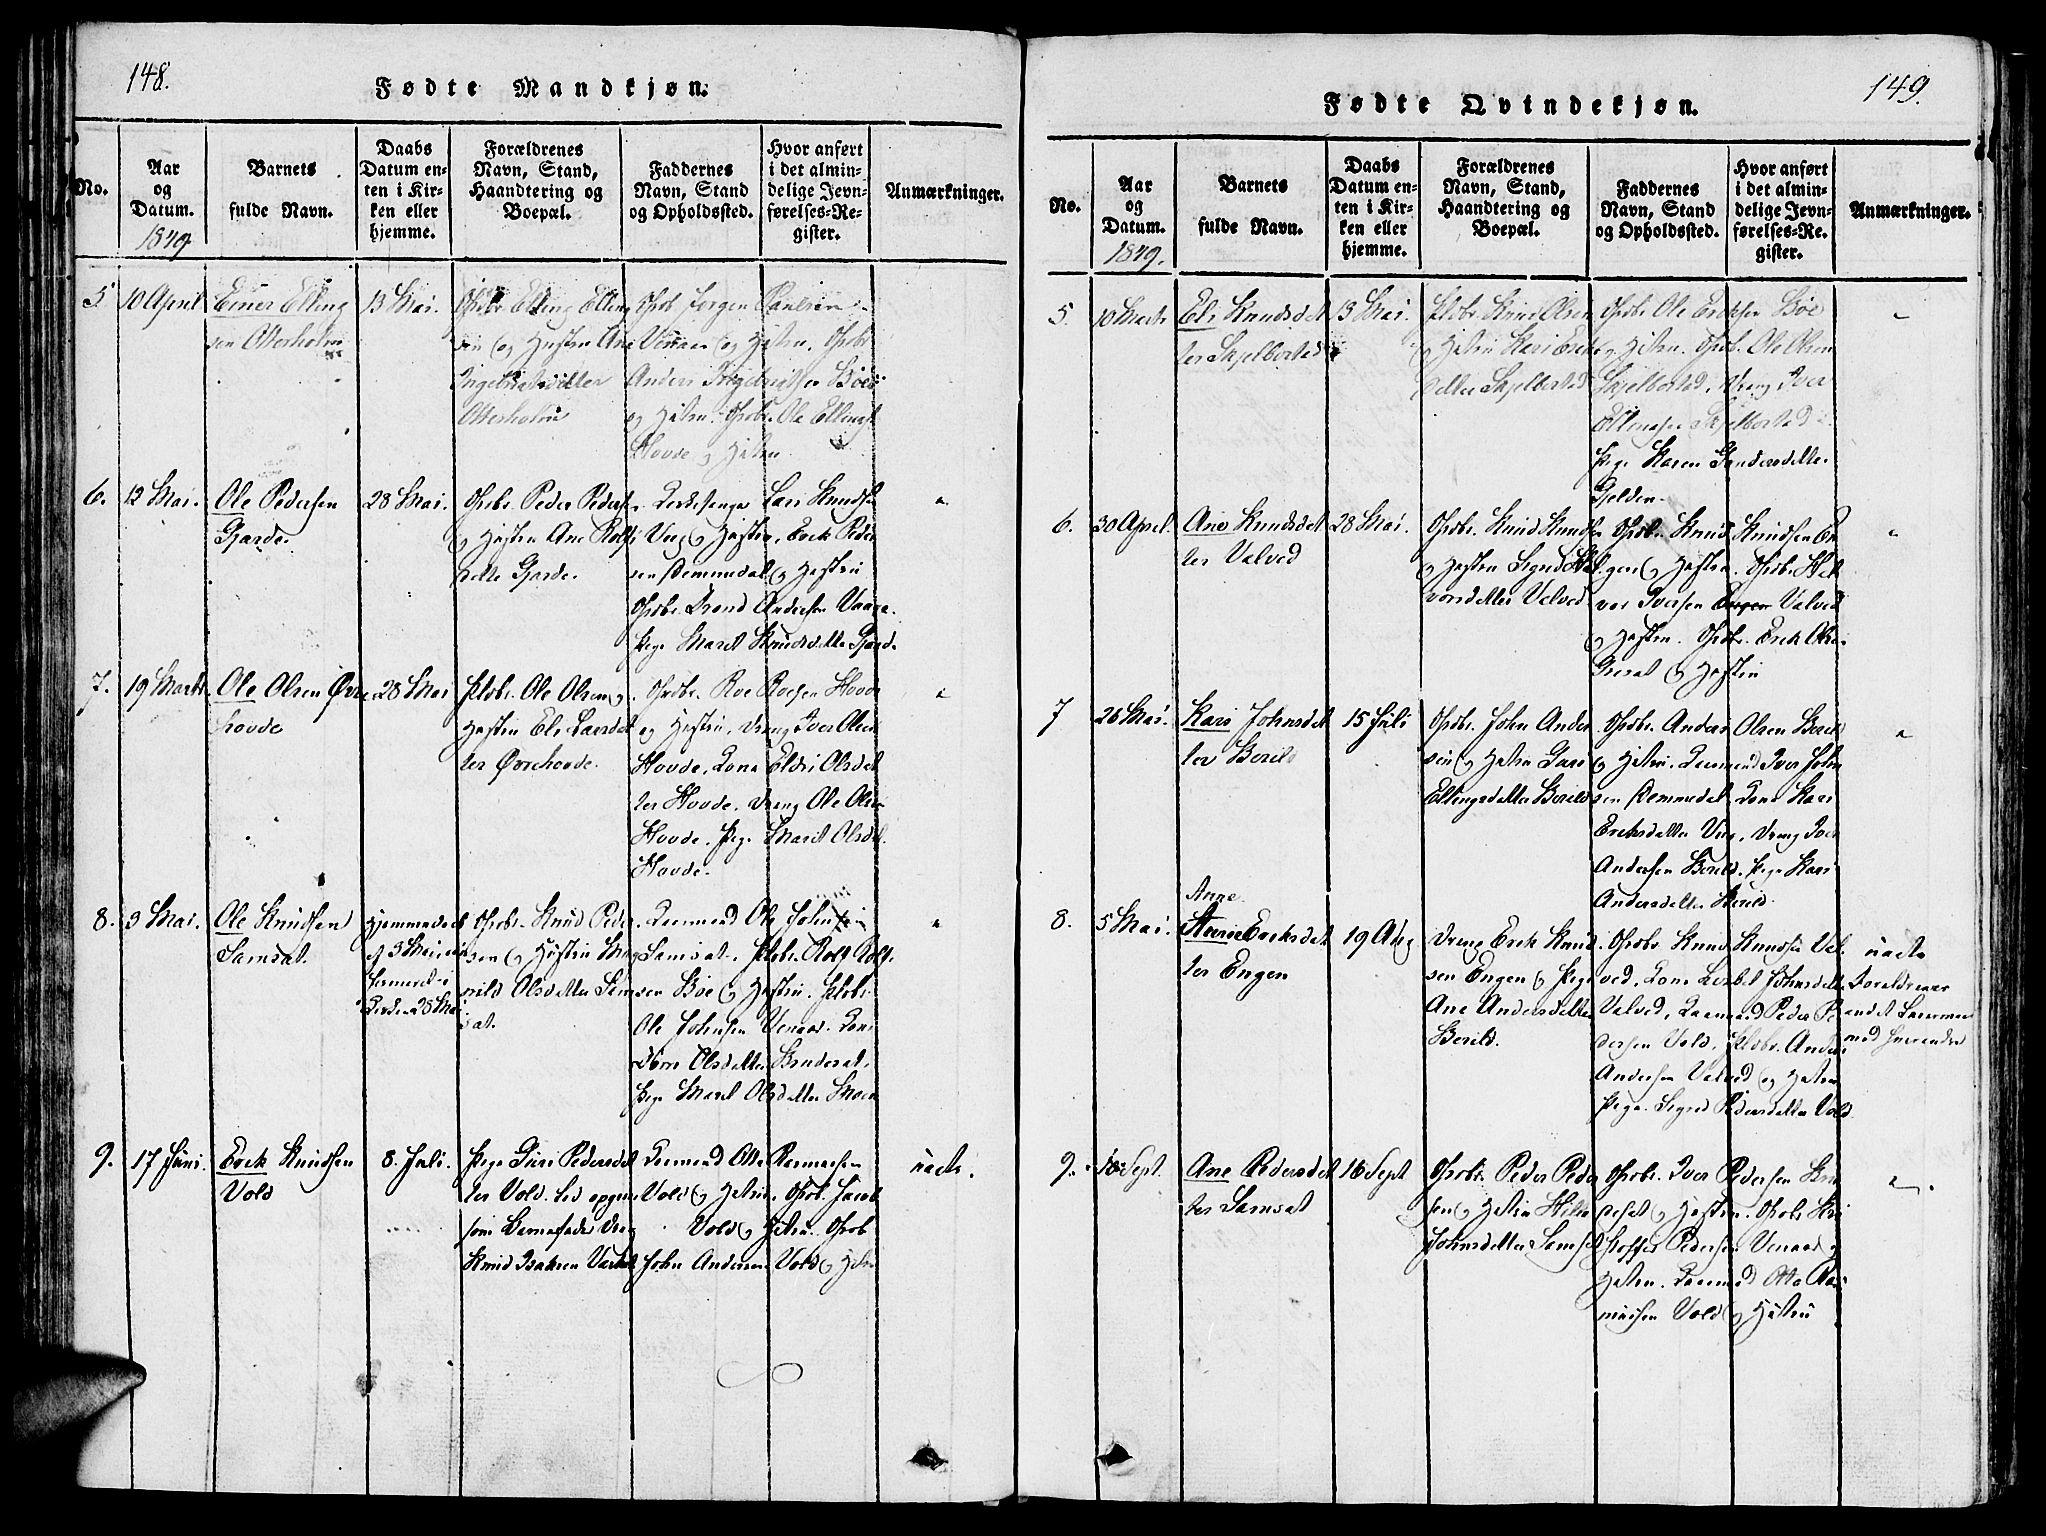 148.
Fødte Mandkjøn.
No.
Aar
og
Datum.
1849.
Barnets
fulde Navn.
Daabs
Datum en-
ten i Kir-
ken eller
hjemme.
Forældrenes
Navn, Stand,
Haandtering og
Boepæl.
Faddernes
Navn, Stand
og Opholdssted.
Hvor anført
i det almin-
delige Jevn-
førelses-Re-
gister.
Anmærkninger.
5
10 April
Einer Elling
sen Otterholm
13 Mai.
Gbr Elling Elling
sen og Hustru Ane
Ingebrictsdatter
Otterholm
Gbr. Jørgen Paulsen
Venaas og Hstru. Gbr.
Anders Ingebrigtsen Boe
og Hstru. Gbr. Ole Ellings
Hovde og Hstru
6.
12 Mai.
Ole Pedersen
Gjærde.
28 Mai.
Gbr. Peder Peders
og Hustru Ane Rolfs
datter Gjærde.
Kirkesanger Lars Knudsen
Veng og Hustru, Erik Peder
sen Remmedal og Hustru
Gbr. Trond Andersen
Pige Marit Knudsdatter Gjærde
7.
19 Marts
Ole Olsen Øvre
hovde
28 Mai
Pldsbr. Ole Olsen og
Hustru Eli Larsdat
ter Øvrehovde.
Gbr. Roe Roesen Hovde
og Hustru, Dreng Iver Olsen
Hovde. Kone Eldri Olsdat
ter Hovde. Dreng Ole Olsen
Hovde. Pige Marit Olsdtr.
Hovde.
8.
3 Mai.
Ole Knudsen
Samsat.
Hjemmedøbt
3 Mai,
i
Kirken 28 Mai
Gbr. Knud Peder
sen og Hustru
Olsdatter Sam
sat.
Ole Johnsen
Samsat. Pldsbr. Rolf Rolf
sen Boe og Hustru. Pldsbr.
Ole Johnsen Venaas. Kone
Olsdatter Brudesat.
Pige Marit Olsdatter Moen
9.
17 Juni.
Erik Knudsen
Vold
8 Juli.
Pige Guri Pedersdat
ter Vold.
som Barnefader Dreng
Knud
Otte Rasmussen
Vold og Hstru. Gbr. Jacob
Vold og Hstru. Gbr.
John Andersen Vold og Hstru
uægte.
149.
Fødte Qvindekjøn.
No.
Aar
og
Datum.
1849.
Barnets
fulde Navn.
Daabs
Datum en-
ten i Kir-
ken eller
hjemme.
Forældrenes
Navn, Stand,
Haandtering og
Boepæl.
Faddernes
Navn, Stand
og Opholdssted.
Hvor anført
i det almin-
delige Jevn-
førelses-Re-
gister.
Anmærkninger.
5.
10 Marts
Eli Knudsdat
ter Skjelbostad
13 Mai.
Pldsbr. Knud Olsen
og Hstru Kari Eriks
datter Skjelbostad
Gbr. Ole Eriksen Boe
og Hstru. Gbr. Ole Olsen
Skjelbostad, Dreng Iver
Ellingsen Skjelbostad
Pige Karen Gundersdatter
6.
30 April.
Ane Knudsdat
ter Valved
28 Mai.
Gbr. Knud Knudsen
og Hustru Sigrid Hal
vorsdatter Valved
Gbr. Knud Knudsen En
gen og Hustru. Gbr. Hal
vor Iversen Engen Valved
og Hustru. Gbr. Erik Olsen
og Hustru
7
26 Mai.
Kari Johnsdat
ter Berild
15 Juli
Gbr. John Ander
sen og Hstru Guri
Ellingsdatter Berild
Gbr. Anders Olsen Berild
og Hstru. Iver John
sen Remmedal. Kone Kari
Eriksdatter Veng, Dreng Iver
Andersen Berild. Pige Kari
Andersdatter Berild.
8.
5 Mai.
Anne
Eriksdat
ter Engen
19 Aug
Dreng Erik Knud
sen Engen og Pige
Ane Andersdatter
Berild.
Gbr. Knud Knudsen Val
ved, Kone Johnsdatter
Valved, Peder Pe
dersen Vold. Pldsbr. Anders
Andersen Valved og Hstru
Pige Sigrid Pedersdatter Vold
uægte
Forældrenes
andet Leiermaal
med hverandre
9.
10 Sept.
Ane Pedersdat
ter Samsat
16 Sept
Gbr. Peder Peder
sen og Hstru
Johnsdatter Samsat
Gbr. Iver Pedersen Bru
desat og Hustru. Gbr. Kri
stoffer Pedersen Venaas og
Hstru. Otte Ras
mussen Vold og Hstru